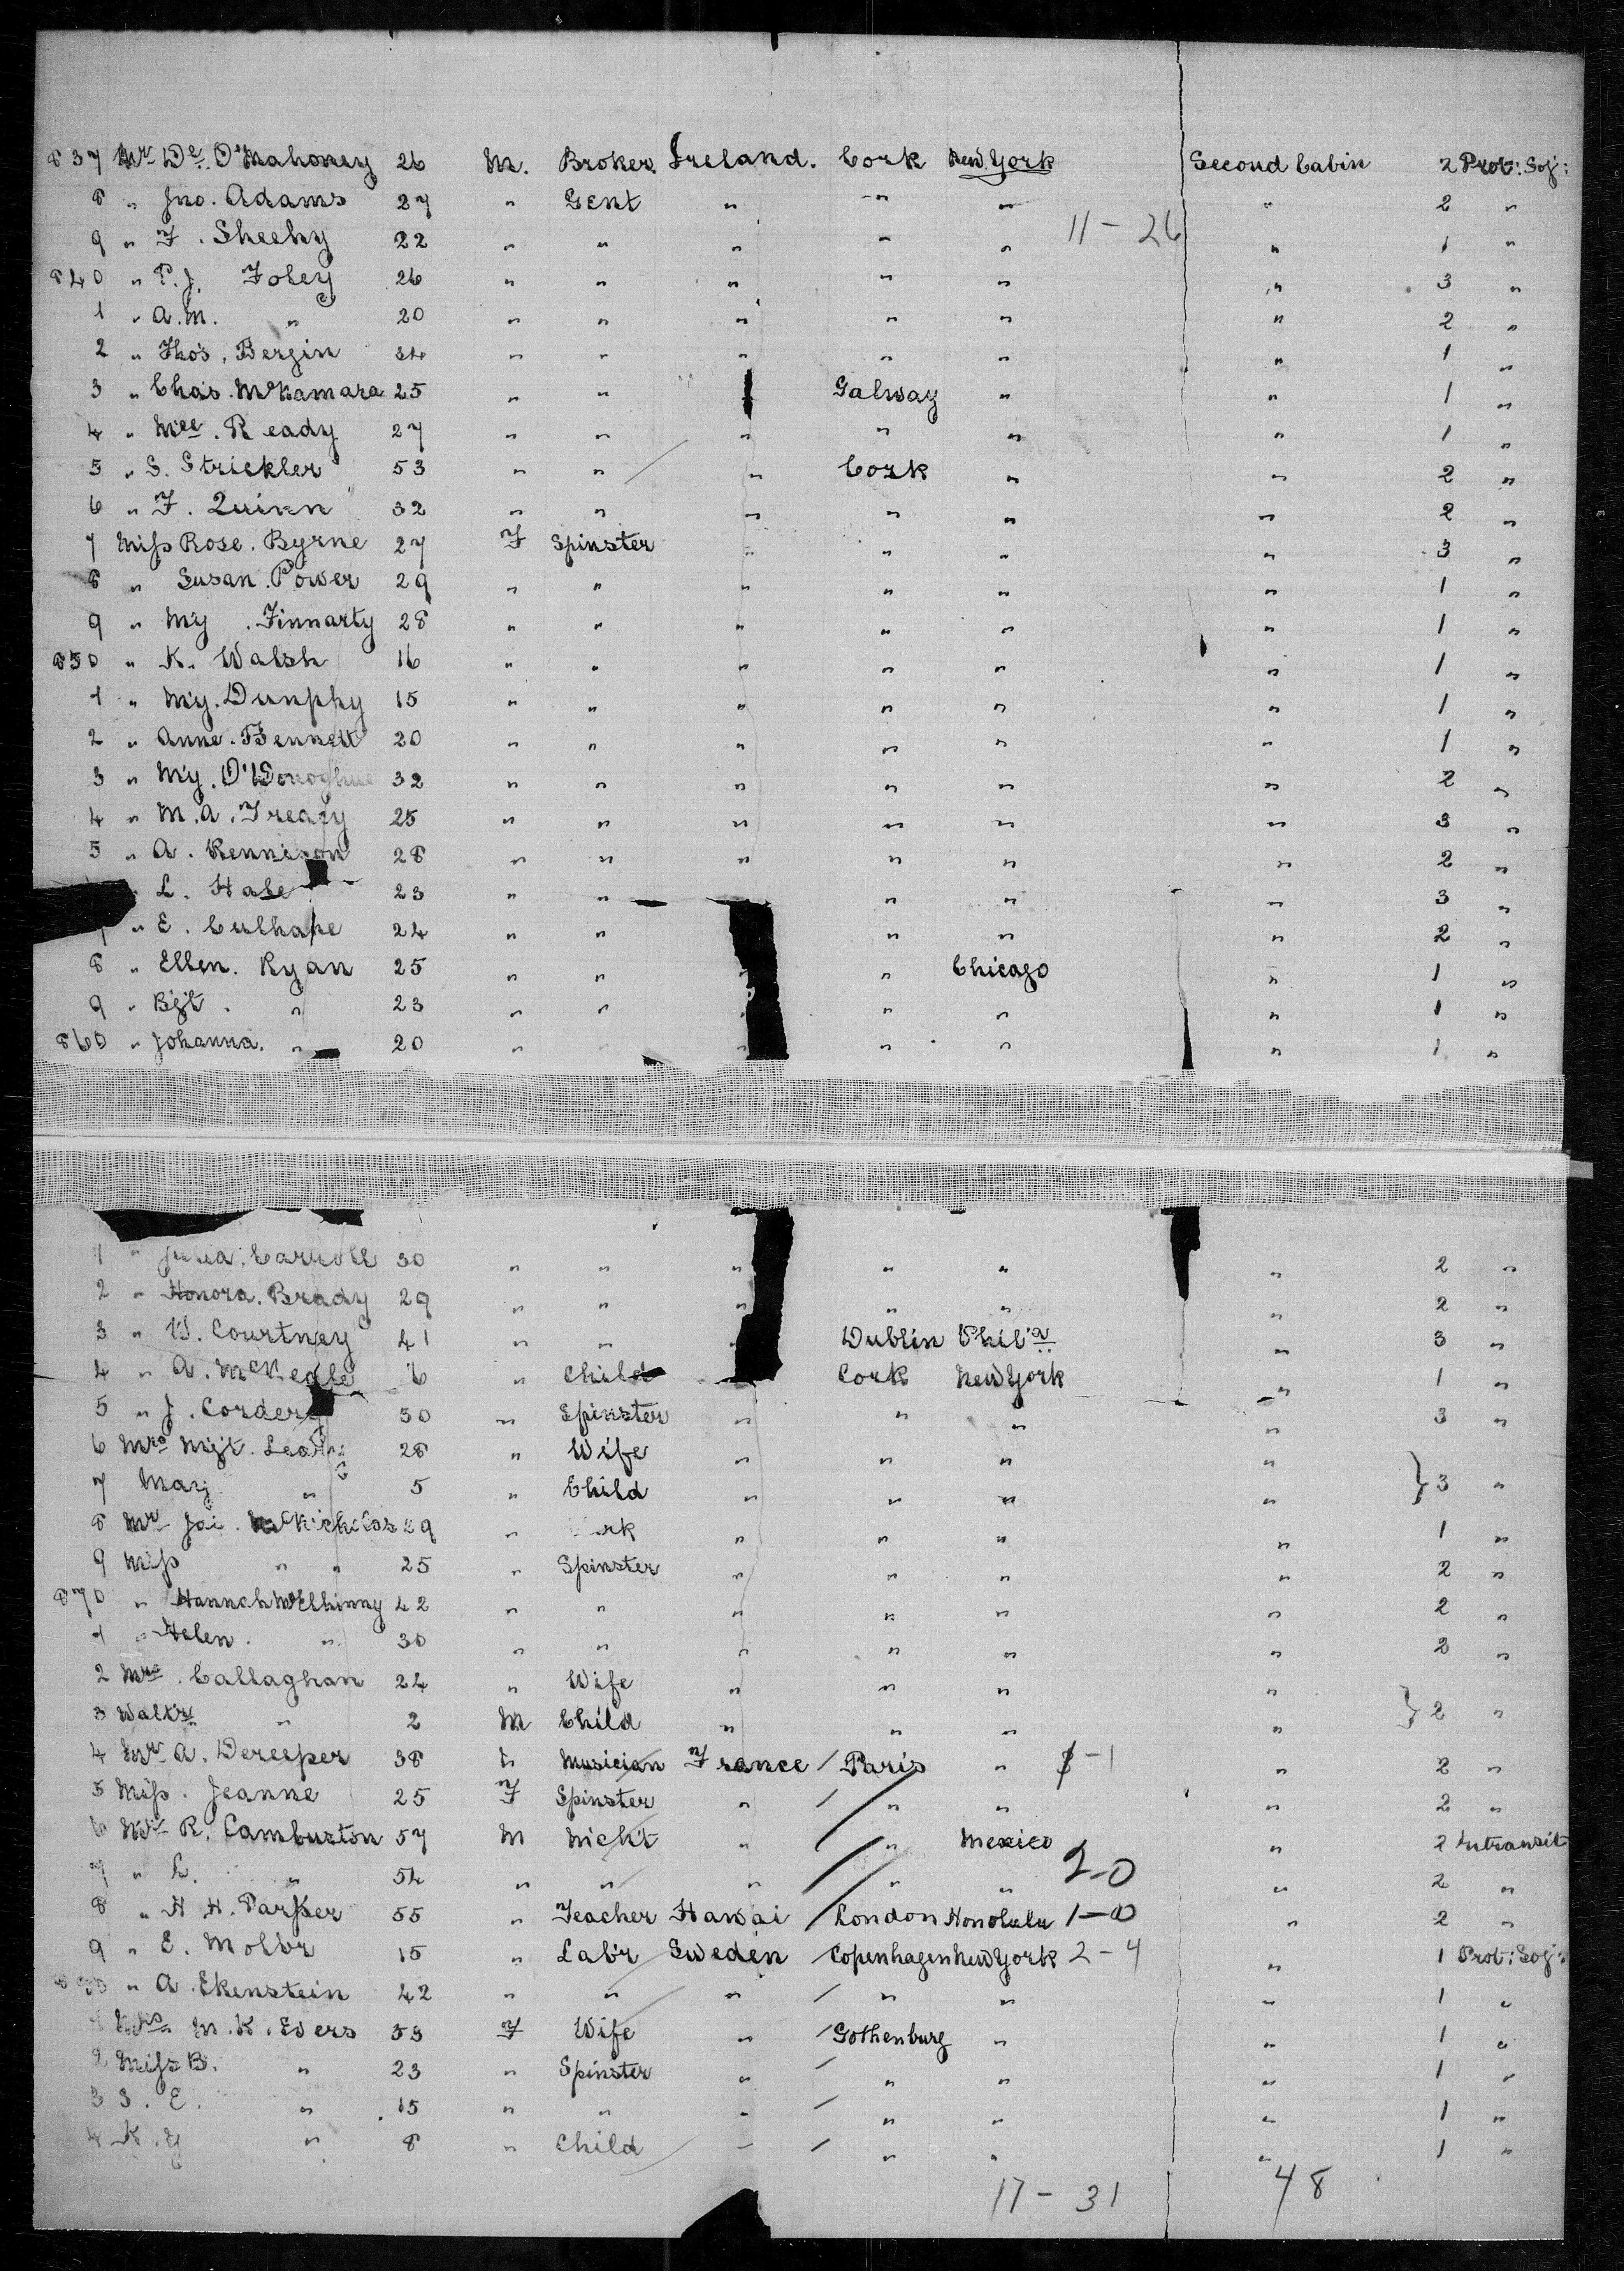 837 Mr Dl. O'Mahoney 26 M. Broker Ireland. Cork New York Second Cabin 2 Prot: Soj:
8 " Jno. Adams 27 " Gent " " " " 2 "
11 - 26
9 " F. Sheehy 22 " " " " " " 1 "
840 " P.J. Foley 26 " " " " " " 3 "
1 " A.M. " 20 " " " " " " 2 "
2 " Thos. Bergin 34 " " " " " " 1 "
3 " Chas. McNamara 25 " " Galway " " 1 "
4 " Mce. Ready 27 " " " " " " 1 "
5 " S. Strickler 53 " " " Cork " " 2 "
6 " F. Quinn 32 " " " " " " 2 "
7 Miss Rose. Byrne 27 F Spinster " " " " 3 "
8 " Susan. Power 29 " " " " " " 1 "
9 " My. Finnarty 28 " " " " " " 1 "
850 " K. Walsh 16 " " " " " " 1 "
1 " My. Dunphy 15 " " " " " " 1 "
2 " Anne. Bennett 20 " " " " " " 1 "
3 " My. O'Donoghue 32 " " " " " " 2 "
4 " M.A. Treacy 25 " " " " " " 3 "
5 " A. Kennison 28 " " " " " " 2 "
" L. Hale 23 " " " " " 3 "
" E. Culhane 24 " " " " " 2 "
8 " Ellen. Ryan 25 " " " " Chicago " 1 "
9 " Bgt. " 23 " " " " " " 1 "
860 " Johanna. " 20 " " " " " " 1 "
1 " Julia. Carroll 30 " " " " " " 2 "
2 " Honora. Brady 29 " " " " " " 2 "
3 " W. Courtney 41 " " " Dublin Phila " 3 "
4 " A. McNeale 6 " Child " Cork New York " 1 "
5 " J. Cordery 30 " Spinster " " " " 3 "
6 Mrs Mgt. Leary 28 " Wife " " " "
7 Mary " 5 " Child " " " " } 3 "
8 Mr Jas. McNicholas 29 " " " " " 1 "
9 Miss " " 25 " Spinster " " " " 2 "
870 " Hannah McElhinny 42 " " " " " " 2 "
1 " Helen. " 30 " " " " " " 2 "
2 Mrs. Callaghan 24 " Wife " " " "
3 Walter " 2 M Child " " " " } 2 "
4 Mr A. Dereeper 38 " Musician France / Paris " 1 " 2 "
5 Miss. Jeanne 25 F Spinster " / " " " 2 "
6 Mr R. Cambuston 57 M Mcht " " Mexico " 2 Intransit
7 " L. " 54 " " " " " 2-0 " 2 "
8 " H H. Parker 55 " Teacher Hawai / London Honolulu 1-0 " 2 "
9 " E. Moller 15 " Labr Sweden / Copenhagen New York 2 - 4 " 1 Prot: Soj:
880 " A. Ekenstein 42 " " " / " " " 1 "
Mrs M.K. Evers 53 F Wife " / Gothenburg " " 1 "
2 Miss B. " 23 " Spinster " / " " " 1 "
3 S. E. " 15 " " " / " " " 1 "
4 K. Y " 8 " Child " / " " " 1 "
17 - 31 48